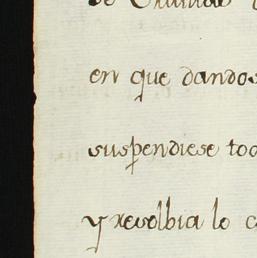 en que dandos
suspendiese to
y revolbia lo